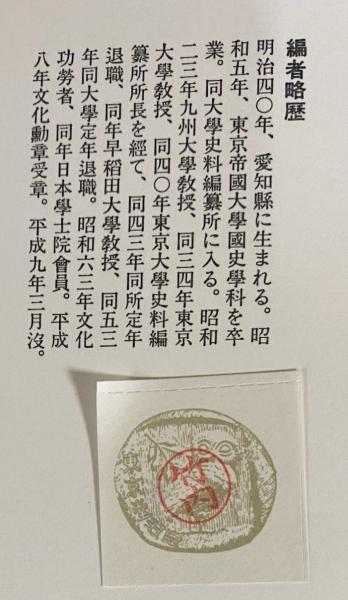 編者略歴
明治四〇年、愛知縣に生まれる。昭
和五年、東京帝國大學國史學科を卒
業。同大學史料編纂所に入る。昭和
二三年九州大學敎授、同三四年東京
大學敎授、同四〇年東京大學史料編
纂所所長を經て、同四三年同所定年
退職、同年早稻田大學敎授、同五三
年同大學定年退職。昭和六三年文化
功勞者、同年日本學士院會員。平成
八年文化勳章受章。平成九年三月沒。
竹内